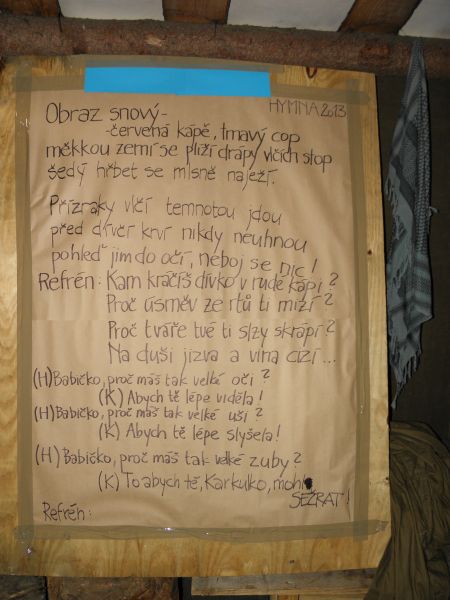 HYMNA 2013
Obraz snový -
- červená kápě, tmavý cop
měkkou zemí se plíží drápy vlčích stop
šedý hřbet se mlsně naježí.
Přízraky vlčí temnotou jdou
před dívčí krví nikdy neuhnou
pohleď jim do očí, neboj se nic!
Refrén: Kam kráčíš dívko v rudé kápi?
Proč úsměv ze rtů ti mizí?
Proč tváře tvé ti slzy skrápí?
Na duši jizva a vina cizí...
(H) Babičko, proč máš tak velké oči?
(K) Abych tě lépe viděla!
(H) Babičko, proč máš tak velké uši?
(K) Abych tě lépe slyšela!
(H) Babičko, proč máš tak velké zuby?
(K) To abych tě, Karkulko, mohl
SEŽRAT!
Refrén: